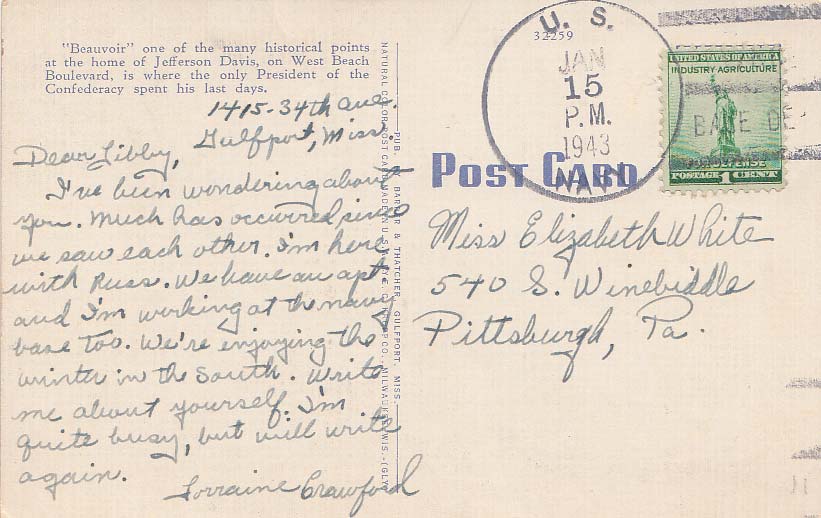 "Beauvoir" one of the many historical points
at the home of Jefferson Davis, on West Beach
Boulevard, is where the only President of the
Confederacy spent his last days.
1415-34th Ave.
Gulfport, Miss.
Dear Libby,
I've been wondering about
you. Much has occurred since
we saw each other. I'm here
with Russ. We have an apt.
and I'm working at the navy
base too. We're enjoying the
winter in the South. Write
me about yourself. I'm
quite busy, but will write
again.
Lorraine Crawford
NATURAL COLOR POST CARD MADE IN U.S.A. BY E. C. KROPP CO., MILWAUKEE, WIS.
PUB. BY BARBER & THATCHER, GULFPORT, MISS.
POST CARD
32259
U. S.
JAN
15
P.M.
1943
NAVY
UNITED STATES OF AMERICA
INDUSTRY·AGRICULTURE
POSTAGE 1 CENT
Miss Elizabeth White
540 S. Winebiddle
Pittsburgh, Pa.